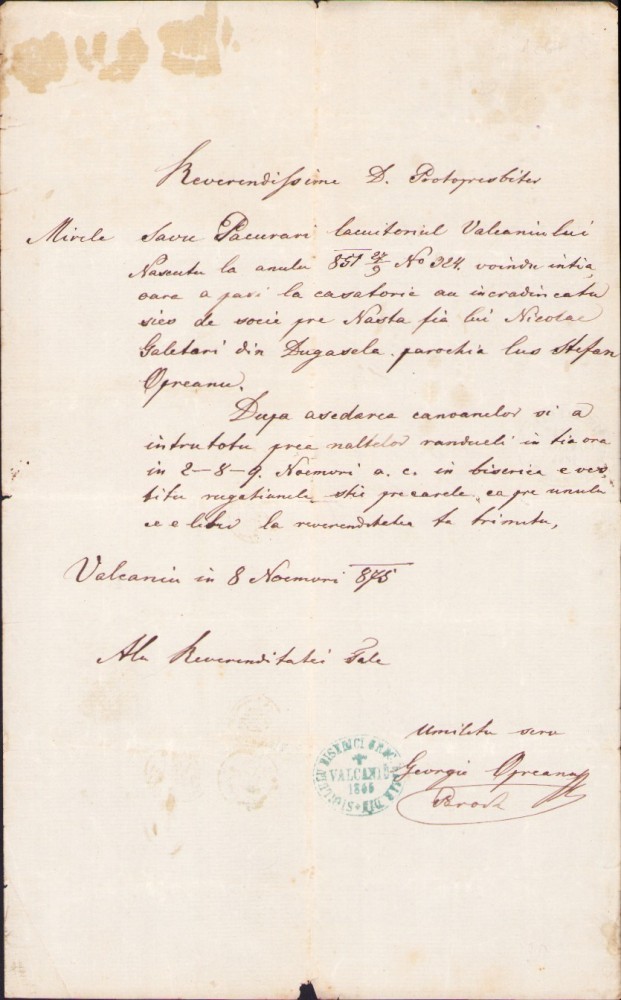 Reverendissime D. Protopresbiter
Mirele Savu Pacurari lacuitoriul Valcaniului
Nascutu la anulu 851 27/9 No 324. voindu intia
oara a pasi la casatorie au incradincatu
sieo de socie pre Nasta fia lui Nicolae
Galetari din Dugasela parochia lui Stefan
Opreanu.
Dupa asedarea canoanelor si a
intrutotu prea naltelor randueli in tia ora
in 2–8–9. Noemvri a. c. in biserica e ves-
titu rugatiunele stie precarele, ca pre unulu
ce e liber la reverenditatea ta trimitu,
Valcaniu in 8 Noemvri 875
Ale Reverenditatei Tale
umilitu serv
Georgie Opreanu
Paroch
VALCANIU
1866